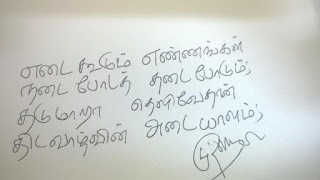 எடை கூடும் எண்ணங்கள்
நடை போடத் தடை போடும்;
தடுமாறா தெளிவேதான்
திடவாழ்வின் அடையாளம்;